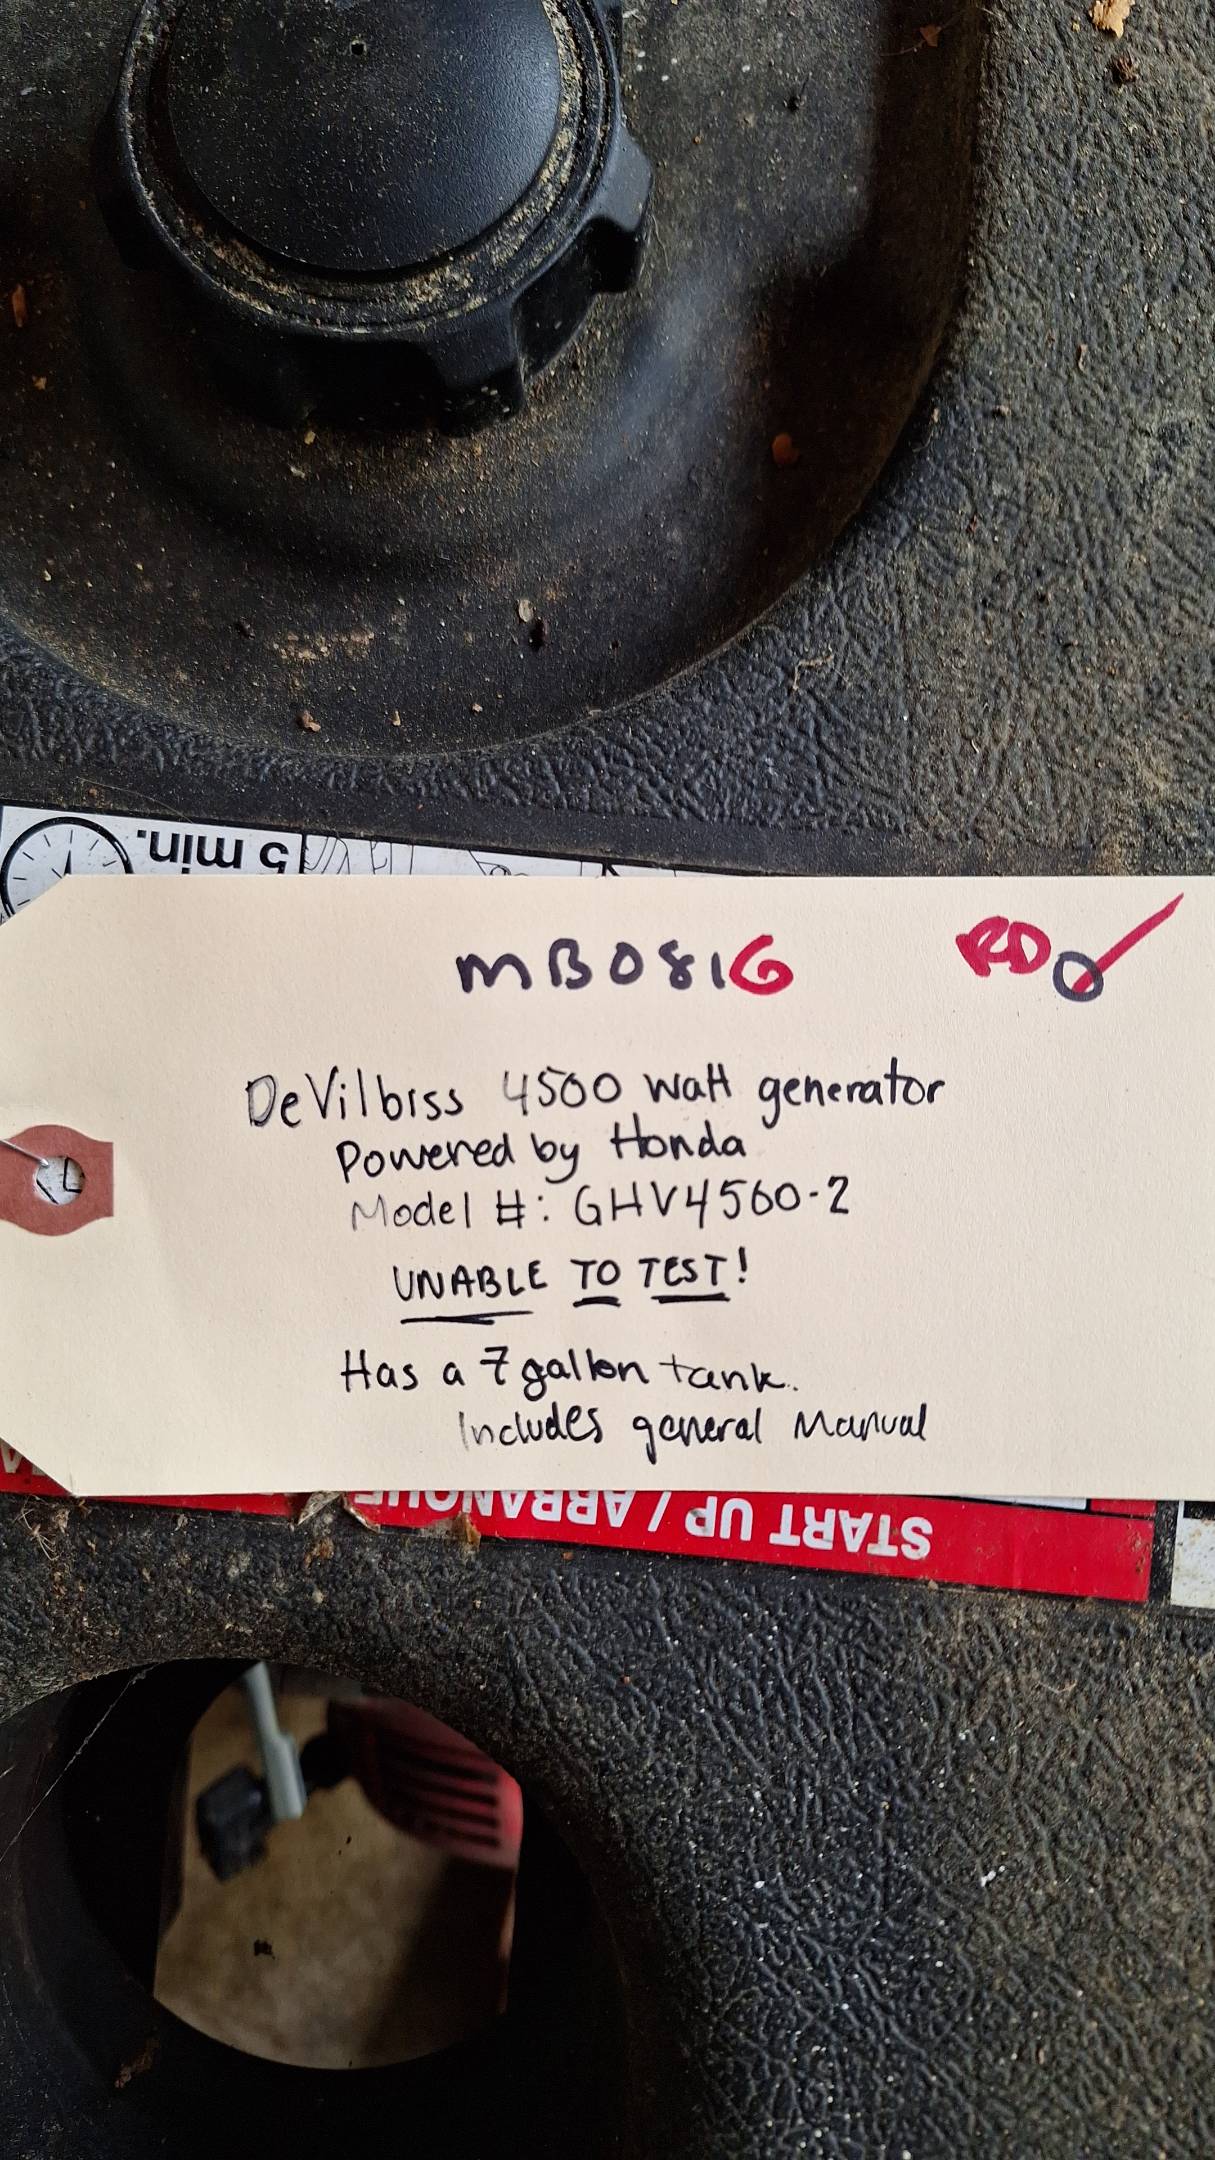 5 min.
MB0816 RD
DeVilbiss 4500 watt generator
Powered by Honda
Model #: GHV4500-2
UNABLE TO TEST!
Has a 7 gallon tank.
Includes general Manual
START UP / ARRANQUE